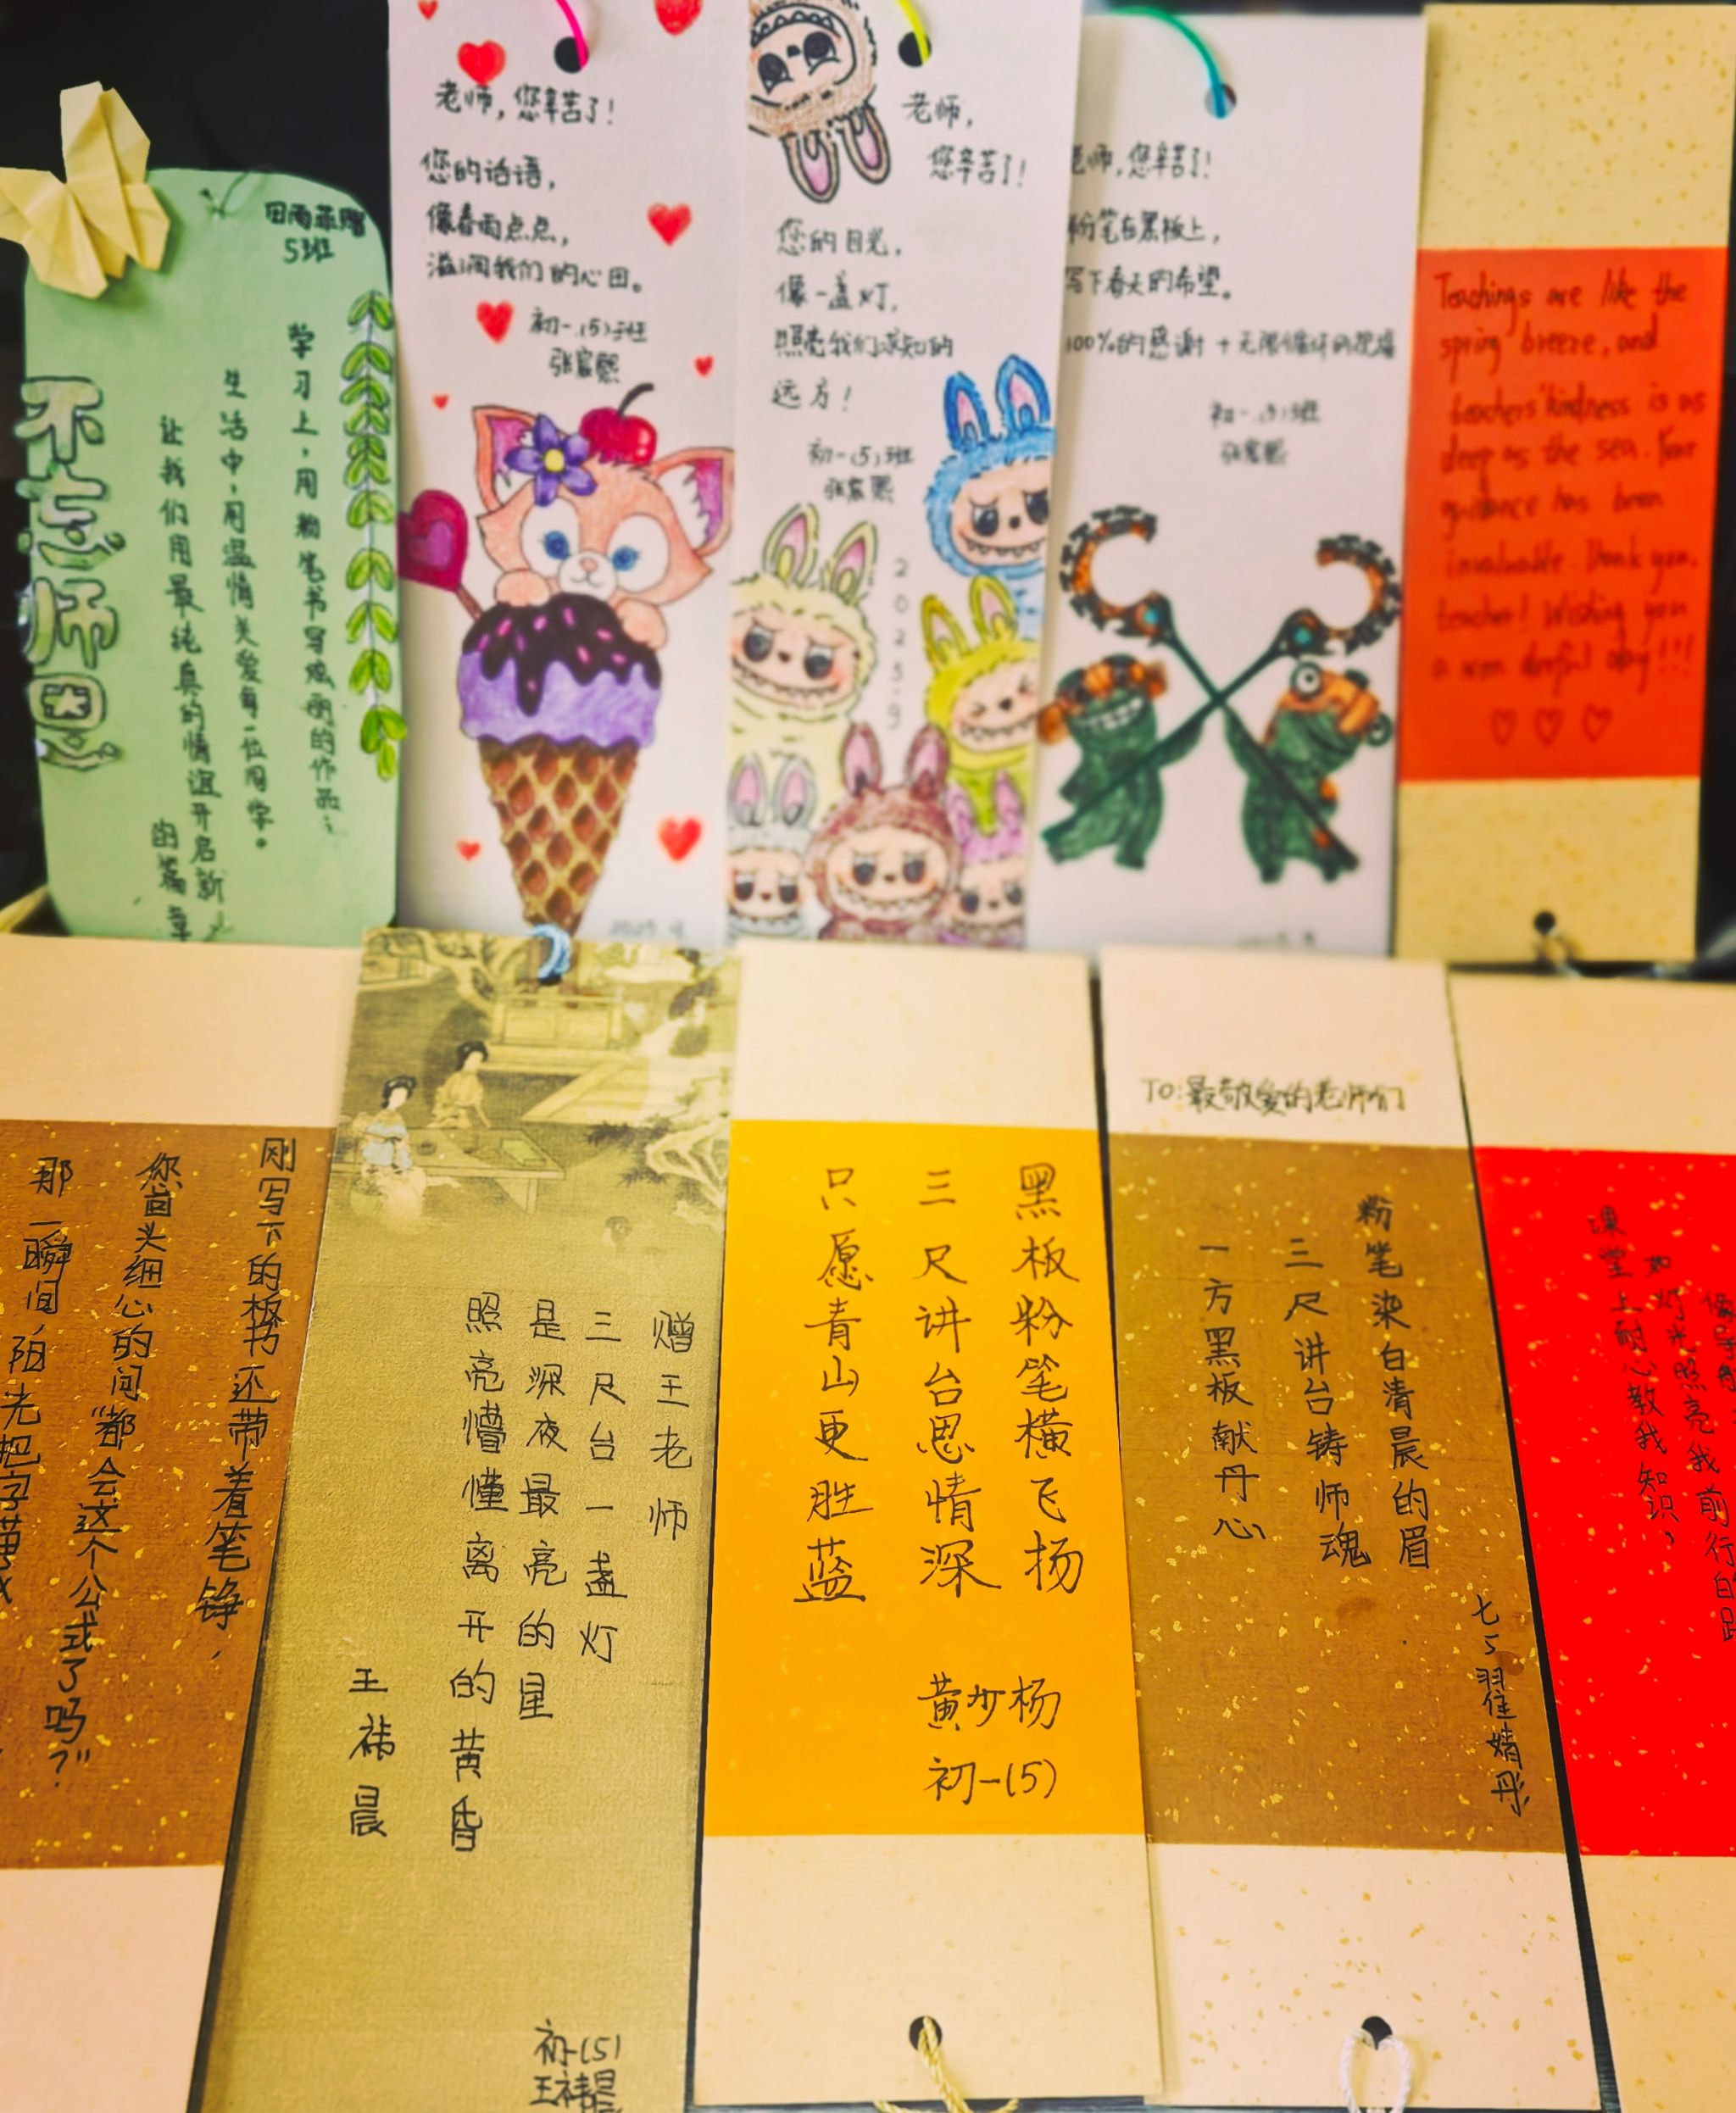 不忘师恩
5班
学习上，用粉笔书写炫丽的作品；
生活中，用温情关爱每一位同学。
让我们用最纯真的情谊开启新
的篇章
老师，您辛苦了！
您的话语，
像春雨点点，
滋润我们的心田。
初一（5）班
张家熙
老师，
您辛苦了！
您的目光，
像一盏灯，
照亮我们求知的
远方！
初一（5）班
张家熙
2025.9
老师，您辛苦了！
粉笔在黑板上，
写下春天的希望。
100%的感谢＋无限循环的祝福
初一（5）班
张家熙
Teachings are like the
spring breeze, and
teachers' kindness is as
deep as the sea. Your
guidance has been
invaluable. Thank you,
teacher! Wishing you
a won derful day!!!
刚写下的板书还带着笔锋，
您回头细心的问"都会这个公式了吗？"
那一瞬间，阳光把字
赠王老师
三尺台一盏灯
是深夜最亮的星
照亮懵懂离开的黄昏
王祎晨
初一（5）
王祎晨
黑板粉笔横飞扬
三尺讲台恩情深
只愿青山更胜蓝
黄妙杨
初一（5）
TO：最敬爱的老师们
粉笔染白清晨的眉
三尺讲台铸师魂
一方黑板献丹心
七5翟婧彤
课堂上耐心教我知识，
如灯光照亮我前行的路